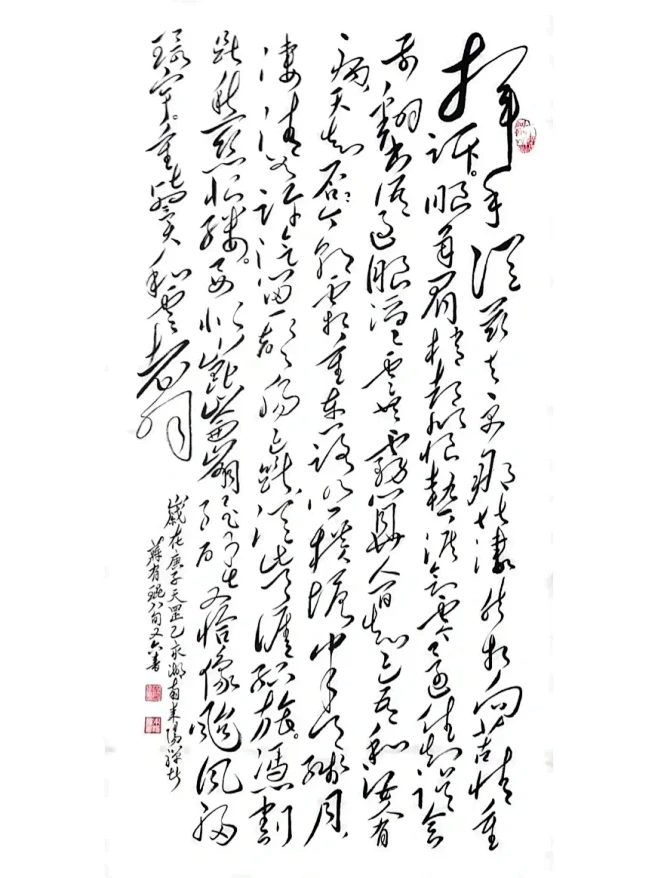 挥手從兹去更那堪凄然相向苦情重
诉。眼角眉梢都似恨热泪欲零还住知误会
前翻书语过眼滔滔云共雾算人间知己吾和汝人有
病天知否今朝霜重东门路照横塘半天残月
凄清如许汽笛一声肠已断從此天涯孤旅。凭割
断愁丝恨缕。要似崑崙崩绝壁又恰像颱风扫
环宇。重比翼和云翥
岁在庚子天罡乙湖南耒阳
薛有琨八旬又六书